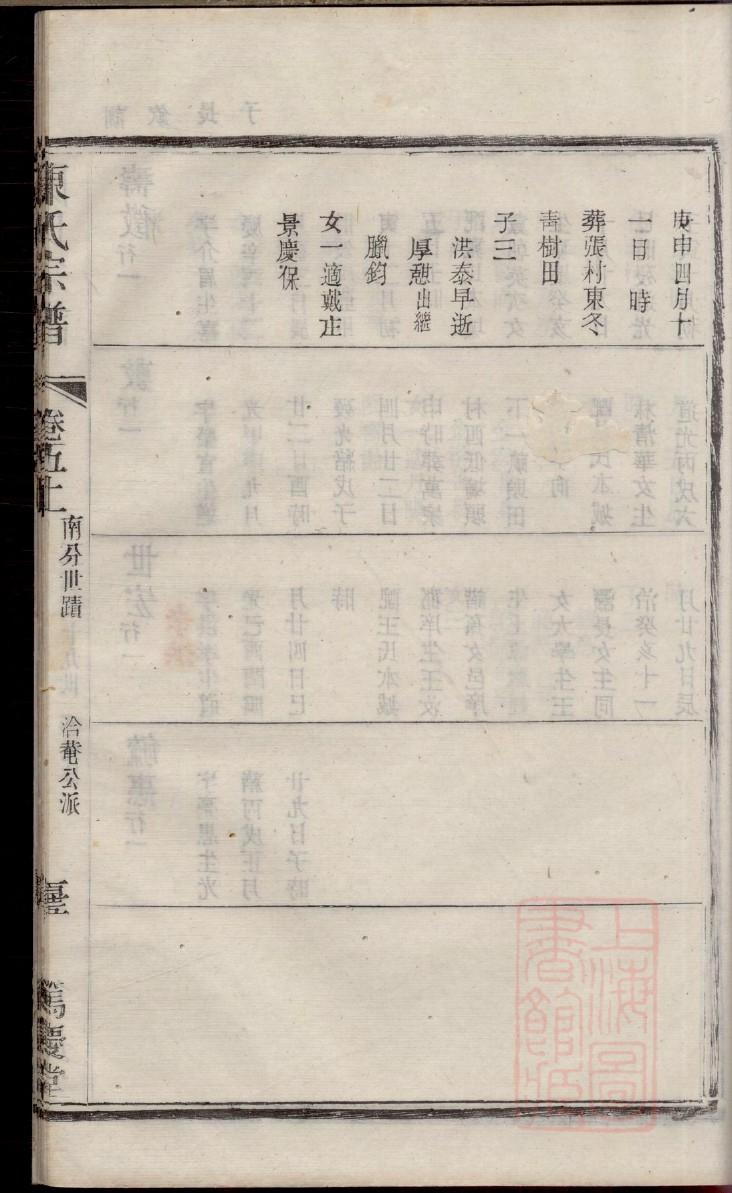 庚申四月十
一日 時
葬張村東冬
青樹田
子三
洪泰早逝
厚憇出繼
臘鈞
女一適戴正
景慶保
陳氏宗譜
卷五上
南分世蹟
洽菴公派
篤慶堂
上海圖
書館藏